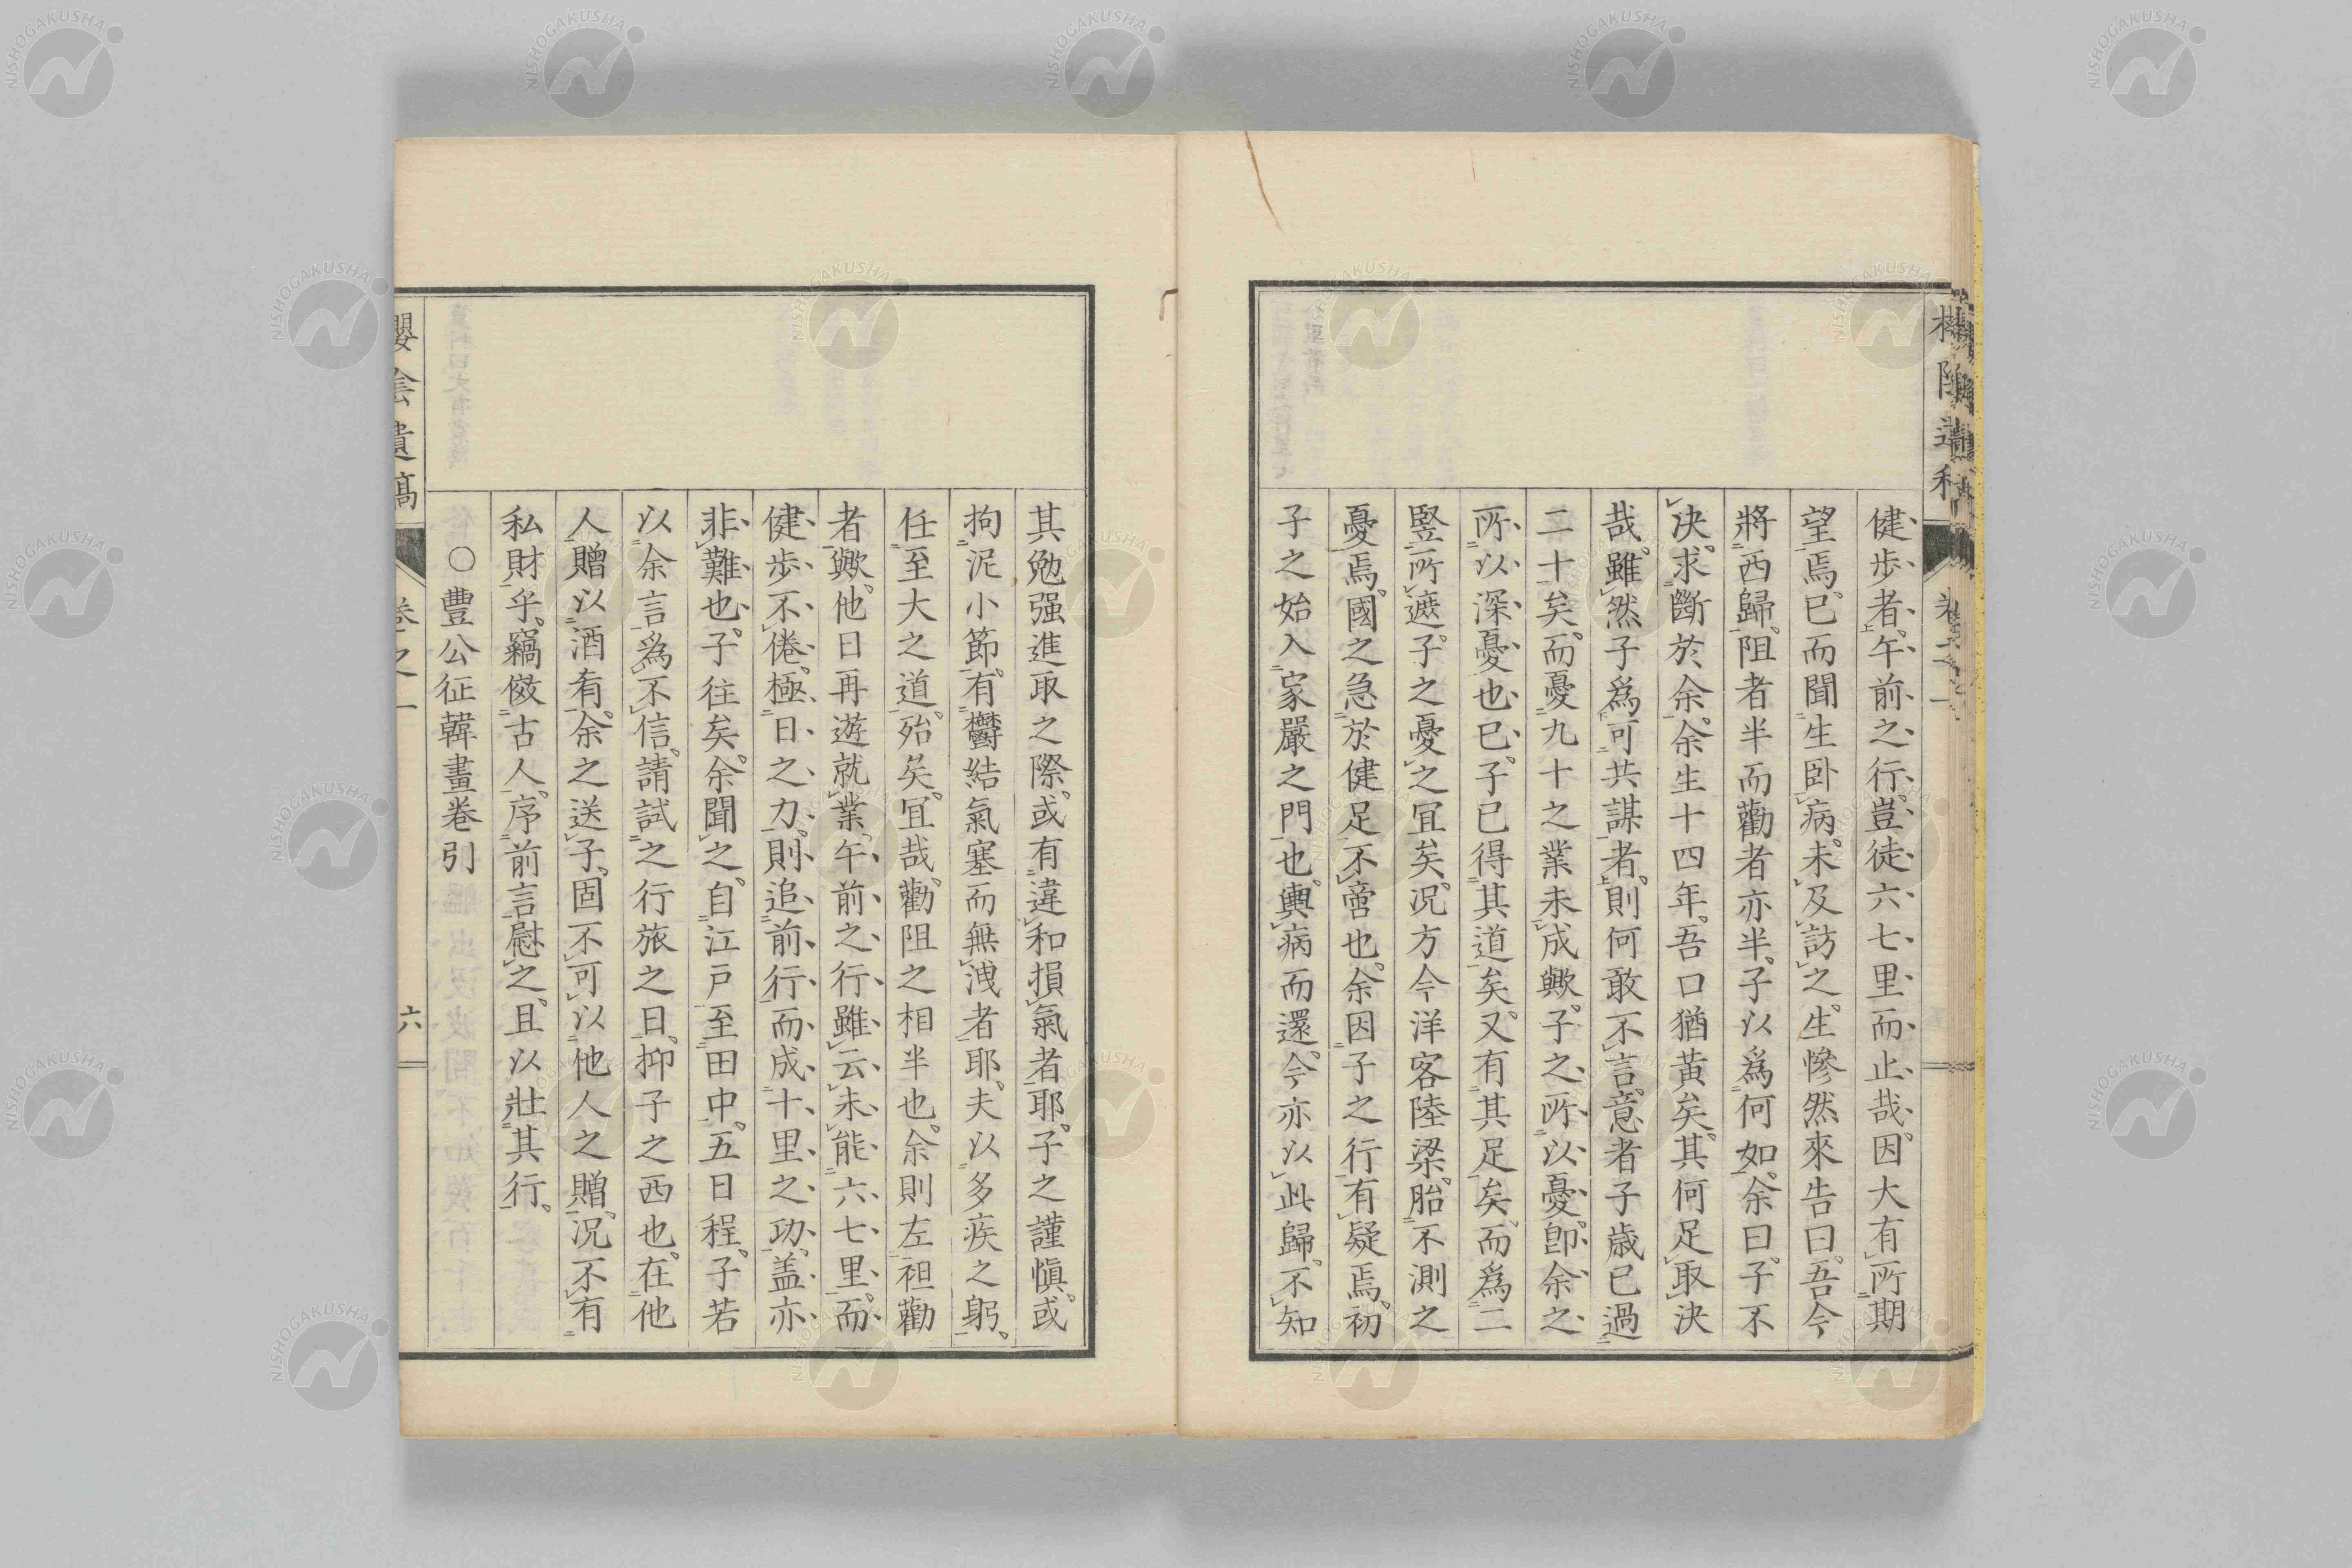 健歩者。午前之行。豈徒六七里而止哉。因大有所期
望焉。已而聞生卧病。未及訪之。生慘然來告曰。吾今
將西歸。阻者半而勸者亦半。子以爲何如。余曰。子不
决。求斷於余。余生十四年。吾口猶黄矣。其何足取决
哉。雖然子爲可共謀者。則何敢不言。意者子歳已過
二十矣。而憂九十之業未成歟。子之所以憂。卽余之
所以深憂也已。子已得其道矣。又有其足矣。而爲二
竪所遮。子之憂之冝矣。况方今洋客陸梁。胎不測之
憂焉。國之急於健足。不啻也。余因子之行。有疑焉。初
子之始入家嚴之門也。輿病而還。今亦以此歸。不知
其勉强進取之際。或有違和損氣者耶。子之謹愼。或
拘泥小節。有鬱結氣塞而無洩者耶。夫以多疾之躬。
任至大之道。殆矣。冝哉。勸阻之相半也。余則左袒勸
者歟。他日再遊就業。午前之行。雖云未能六七里。而
健歩不倦。極日之力。則追前行而成十里之功。盖亦
非難也。子往矣。余聞之。自江戸至田中。五日程。子若
以余言爲不信。請試之行旅之日。抑子之西也。在他
人贈以酒肴。余之送子。固不可以他人之贈。况不有
私財乎。竊傚古人。序前言慰之。且以壯其行。
○豐公征韓畫卷引
櫻陰遺稿
卷之一
六
NISHOGAKUSHA